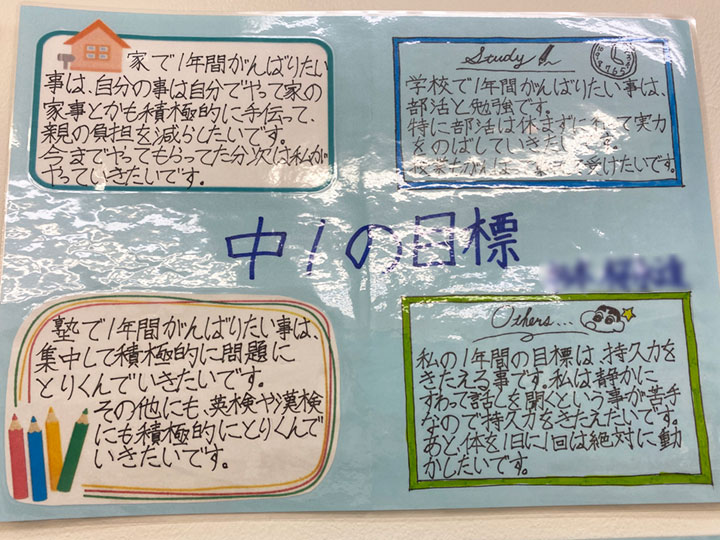 家で1年間がんばりたい
事は、自分の事は自分でやって家の
家事とかも積極的に手伝って、
親の負担を減らしたいです。
今までやってもらってた分次は私が
やっていきたいです。
Study
学校で1年間がんばりたい事は、
部活と勉強です。
特に部活は休まずに行って実力
をのばしていきたい
授業もがんば 受けたいです。
中1の目標
塾で1年間がんばりたい事は、
集中して積極的に問題に
とりくんでいきたいです。
その他にも、英検や漢検
にも積極的にとりくんで
いきたいです。
Others...
私の1年間の目標は、持久力を
きたえる事です。私は静かに
すわって話しを聞くという事が苦手
なので持久力をきたえたいです。
あと、体を1日に1回は絶対に動
かしたいです。